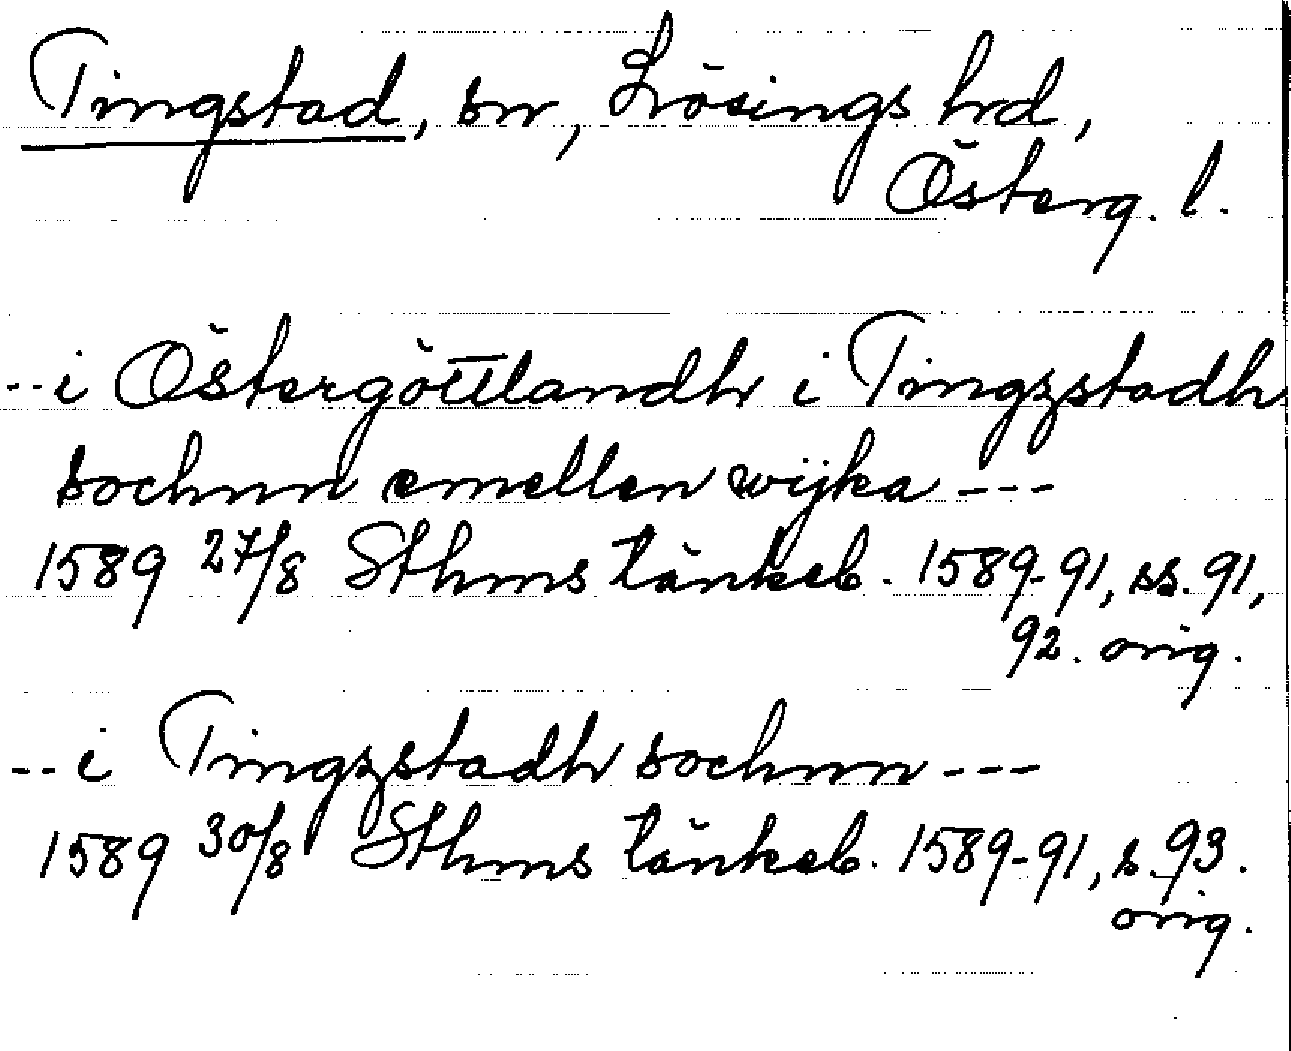 Tingstad, sn, Lösings hd,
Österg. l.
-- i Östergöttlandh i Tingzstadh
sochnn emellen wijka ---
1589 27/8 Sthms tänkeb. 1589-91, ss. 91,
92. orig.
-- i Tingzstadh sochnn ---
1589 30/8 Sthms tänkeb. 1589-91, s. 93.
orig.